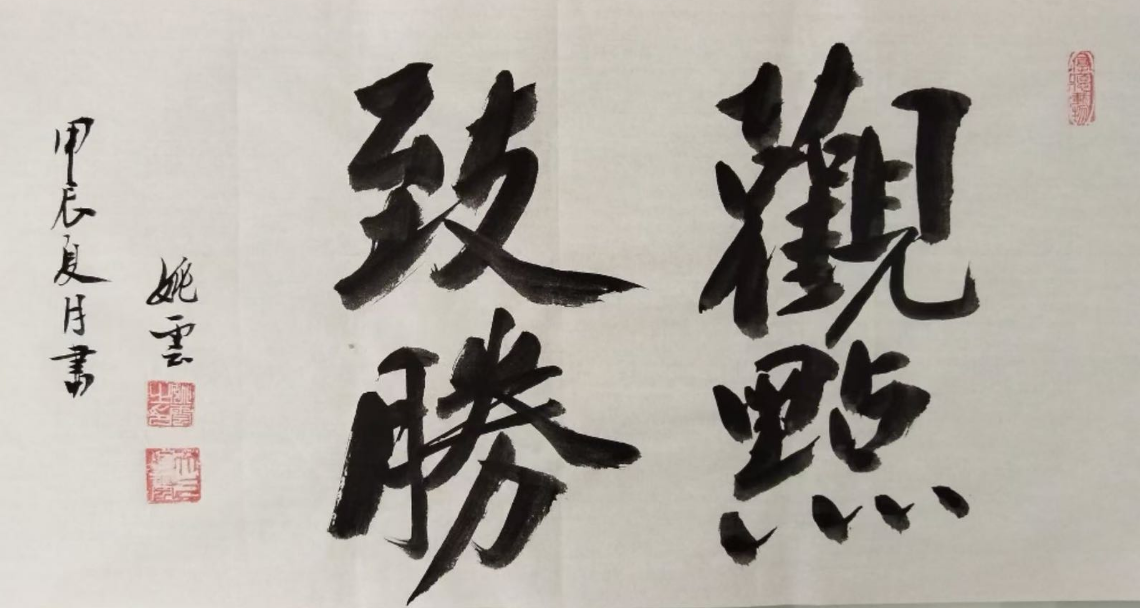 觀點
致勝
姚雲
甲辰夏月書